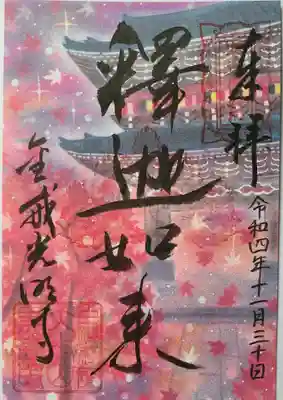 奉拝
令和四年十一月三十日
釋迦如来
金戒光明寺